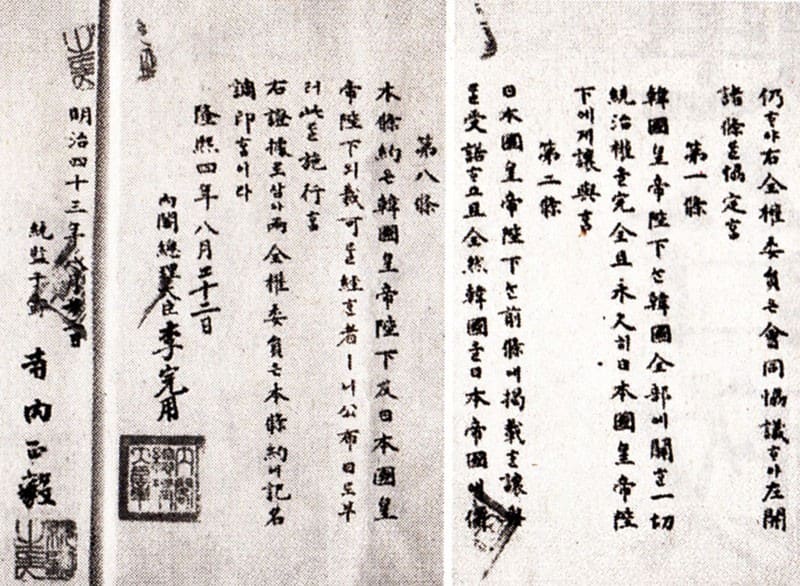 仍ᄒᆞ야右全權委員은會同協議ᄒᆞ야左開
諸條를協定홈
第一條
韓國皇帝陛下ᄂᆞᆫ韓國全部에關ᄒᆞᆫ一切
統治權을完全且永久히日本國皇帝陛
下에게讓與홈
第二條
日本國皇帝陛下ᄂᆞᆫ前條에揭載ᄒᆞᆫ讓與
를受諾ᄒᆞ고且全然韓國을日本帝國에併
第八條
本條約은韓國皇帝陛下及日本國皇
帝陛下의裁可를經ᄒᆞᆫ者ㅣ니公布日로부
터此를施行홈
右證據로삼아兩全權委員은本條約에記名
調印홈이라
隆熙四年八月二十二日
內閣總理大臣李完用
明治四十三年八月二十二日
統監子爵 寺內正毅